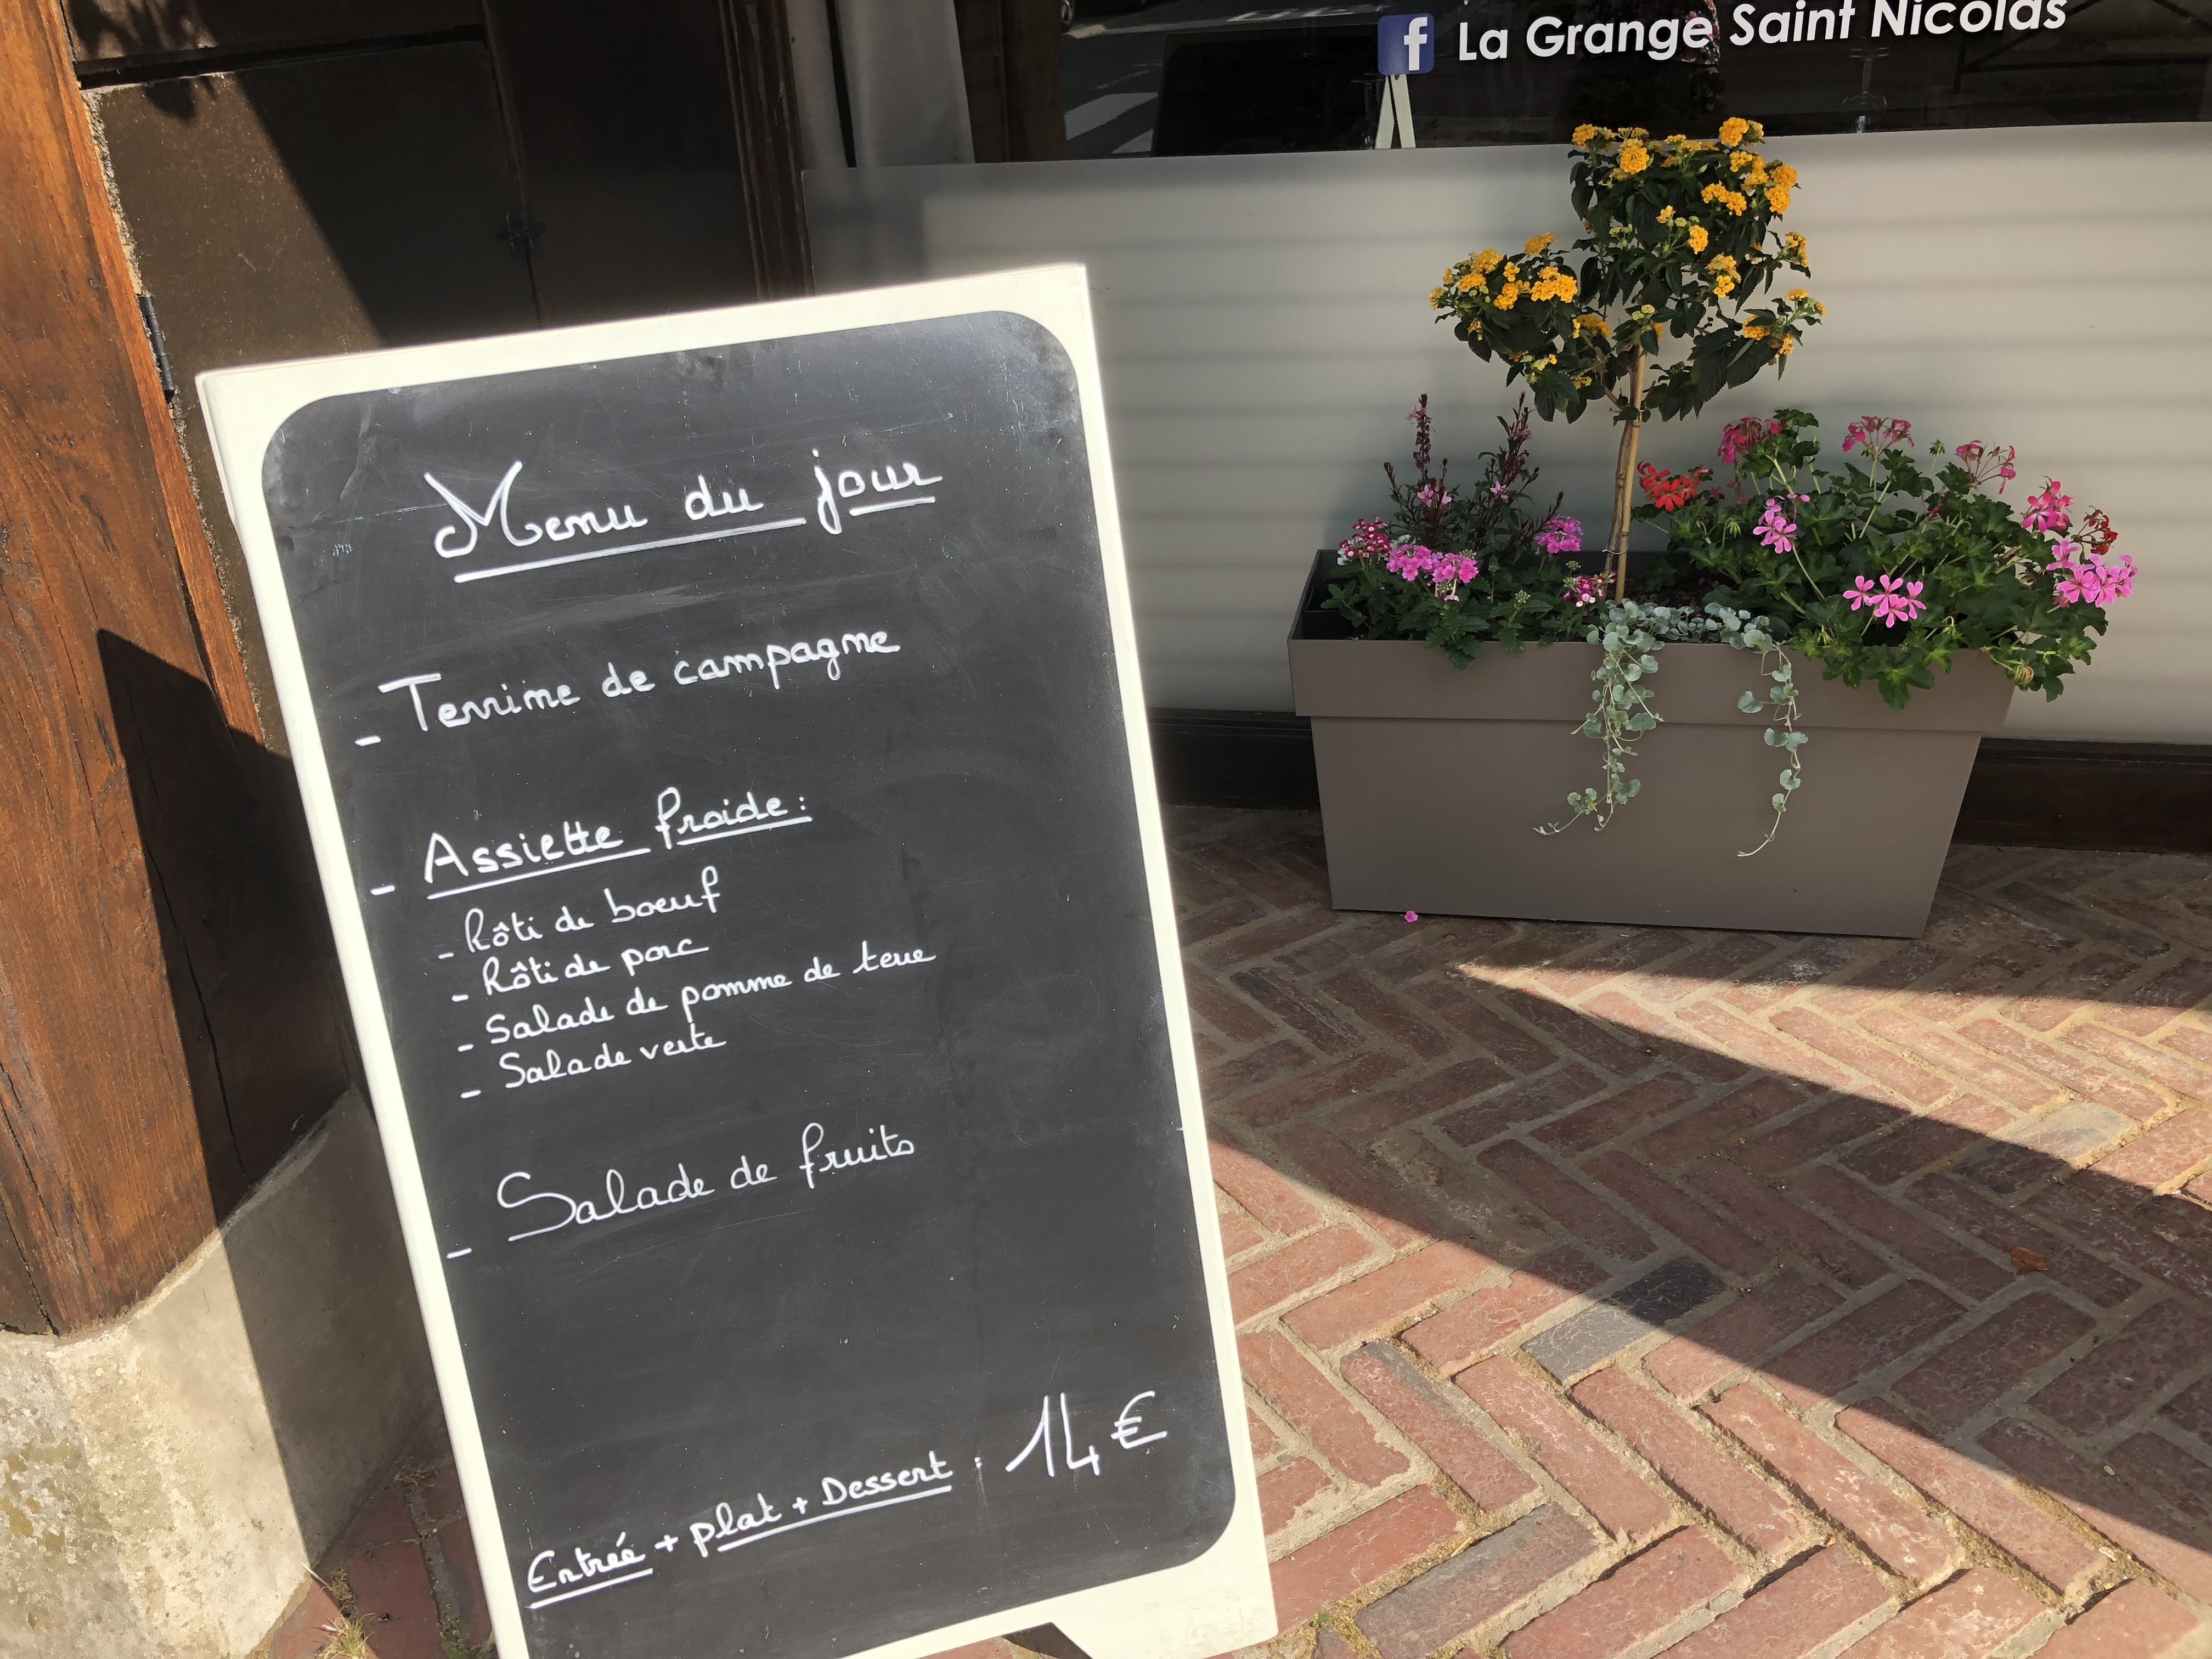 f La Grange Saint Nicolas
Menu du jour
- Terrine de campagne
- Assiette froide :
- Rôti de boeuf
- Rôti de porc
- Salade de pomme de terre
- Salade verte
- Salade de fruits
Entrée + plat + Dessert : 14 €